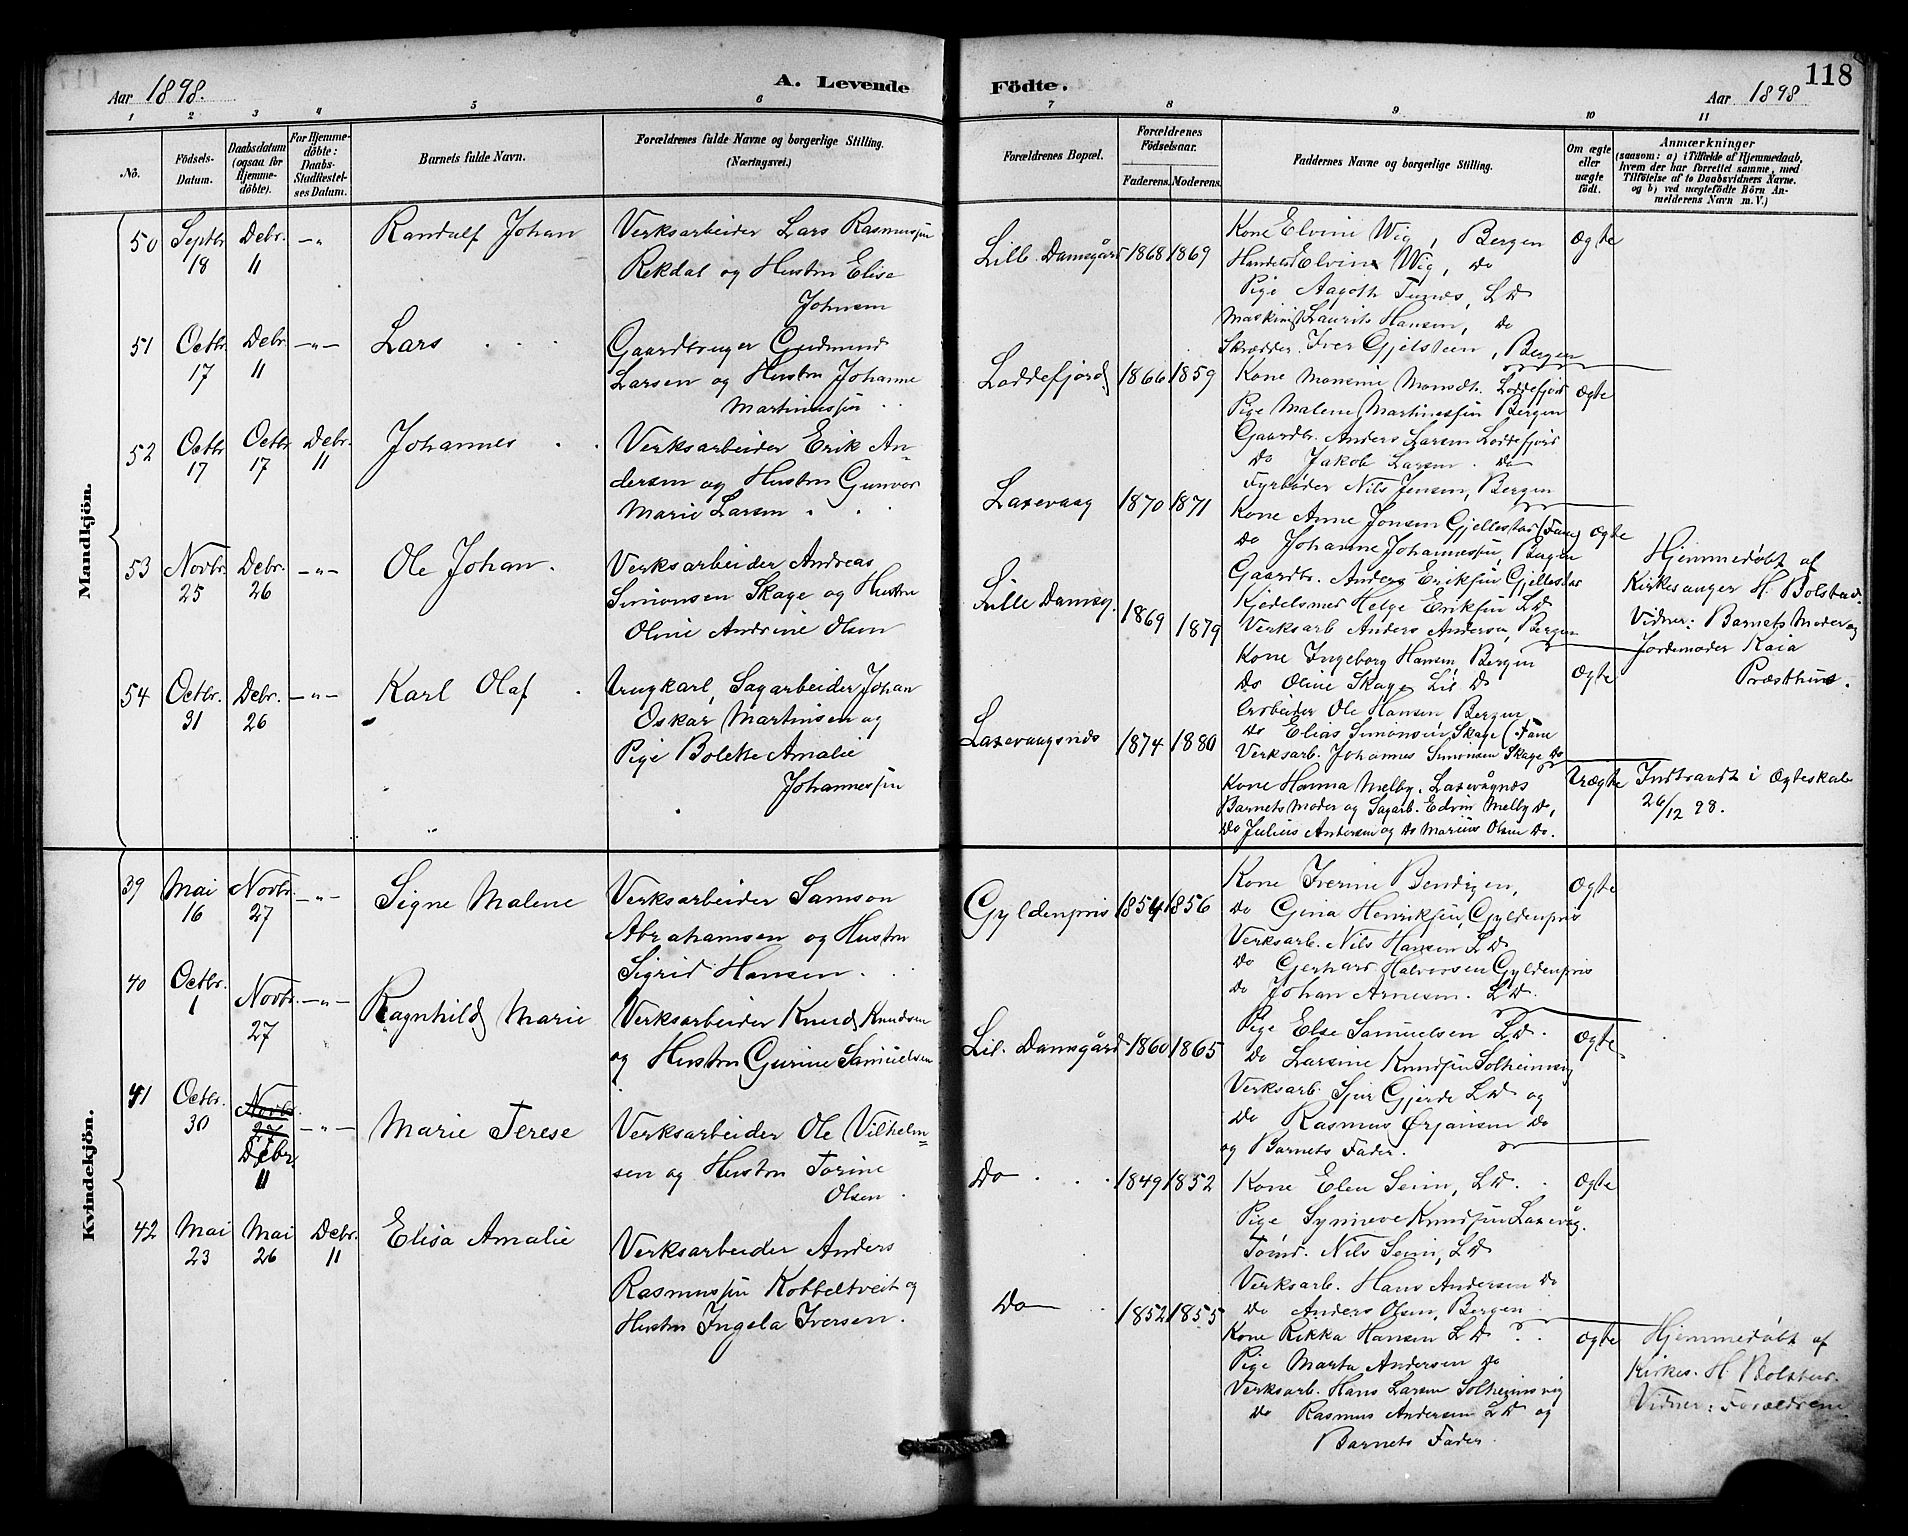 Aar 1898.
A. Levende
Födte.
Aar 1898
118
1 2 3 4 5 6 7 8 9 10 11
No.
Födsels-Datum.
Daabsdatum (ogsaa for Hjemme-döbte).
For Hjemme-döbte: Daabs-Stadfæstel-ses Datum.
Barnets fulde Navn.
Forældrenes fulde Navne og borgerlige Stilling. (Næringsvei.)
Forældrenes Bopæl.
Forældrenes Födselsaar.
Faderens. Moderens.
Faddernes Navne og borgerlige Stilling.
Om ægte eller uægte födt.
Anmærkninger
(saasom: a) i Tilfælde af Hjemmedaab, hvem der har forrettet samme, med Tilföielse af to Daabsvidners Navne. og b) ved uægtefödte Börn An-melderens Navn m. V.)
Mandkjön.
50 Septbr. 18 Debr. 11 -"- Randulf Johan
Verksarbeider Lars Rasmussen
Rekdal og Hustru Elisa
Johnsen
Lille Damsgård 1868 1869
Kone Elvine Wig, Bergen
Handelsb Elvin Wig, Do
Pige Aagoth Tunes, L D
Maskinist Laurits Hansen, Do
Skrædder. Iver Gjelsteen, Bergen
Ægte
51 Octbr. 17 Debr. 11 -"- Lars
Gaardbruger Gudmund
Larsen og Hustru Johanne
Martinussen
Loddefjord 1866 1859
Kone Monsine Monsdt. Loddefjord
Pige Malene Martinessen Bergen
Gaardbr. Anders Larsen Loddefjord
Do Jakob Larsen. Do
Fyrbøder Nils Jensen, Bergen
Ægte
52 Octbr. 17 Octbr. 17 Debr. 11 Johannes
Verksarbeider Erik An-
dersen og Hustru Gunvor
Marie Larsen
Laxevaag 1870 1871
Kone Anne Jonsen Gjellestad (Fane)
Do Johanne Johannessen, Bergen
Gaardbr. Anders Eriksen Gjellestad
Kjedelsmed Helge Eriksen L D
Verksarb Anders Andersen, Bergen
Ægte
Hjemmedøbt af
Kirkesanger H. Bolstad.
Vidner: Barnets Moder og
Jordemoder Kaia
Præsthus.
53 Novbr. 25 Debr. 26 -"- Ole Johan.
Verksarbeider Andreas
Simonsen Skage og Hustru
Oline Andrine Olsen
Lille Damsg. 1869 1879
Kone Ingeborg Hansen, Bergen
Do Oline Skage Lil. D
Arbeider Ole Hansen Bergen
Do Elias Simonsen Skage (Fane
Verksarb. Johannes Simonsen Skage Do
Ægte
54 Octbr. 31 Debr. 26 -"- Karl Olaf
Ungkarl, Sagarbeider Johan
Oskar Martinsen og
Pige Bolette Amalie
Johannessen
Laxevaagsnds 1874 1880
Kone Hanna Melby. Laxevågnds
Barnets Moder og Sagarb. Edvin Melby Do,
Do Julius Andersen og Do Marius Olsen Do.
Uægte
Indtraadt i Ægteskab
26/12 98.
Kvindekjön.
39 Mai 16 Novbr. 27 -"- Signe Malene
Verksarbeider Samson
Abrahamsen og Hustru
Sigrid Hansen.
Gyldenpris 1854 1856
Kone Iverine Bendixen,
Do Gina Henriksen, Gyldenpris
Verksarb. Nils Hansen L D
Do Gerhard Halvorsen Gyldenpris
Do Johan Arnesen. L D.
Ægte
40 Octbr. 1 Novbr. 27 -"- Ragnhild Marie
Verksarbeider Knud Knudsen
og Hustru Gurine Samuelsen
Lil. Damsgård 1860 1865
Pige Else Samuelsen L D.
Do Larsine Knudsen Solheimsvig
Verksarb. Sjur Gjerde L D og
Do Rasmus Ørjansen Do
og Barnets Fader.
Ægte
41 Octbr. 30 Novbr. 27 Debr. 11 -"- Marie Terese
Verksarbeider Ole Vilhelm-
sen og Hustru Torine
Olsen.
Do 1849 1852
Kone Elen Seim, L D.
Pige Synneve Knudsen Laxevåg.
Tømd. Nils Seim, L D
Verksarb. Hans Andersen Do
Do Anders Olsen, Bergen
Ægte
42 Mai 23 Mai 26 Debr. 11 Elisa Amalie
Verksarbeider Anders
Rasmussen Kobbeltveit og
Hustru Ingela Iversen.
Do 1852 1855
Kone Rikka Hansen L D
Pige Marta Andersen Do
Verksarb. Hans Larsen Solheimsvig
Do Rasmus Andersen L D og
Barnets Fader.
Ægte
Hjemmedøbt af
Kirkes. H. Bolstad.
Vidner: Forældrene